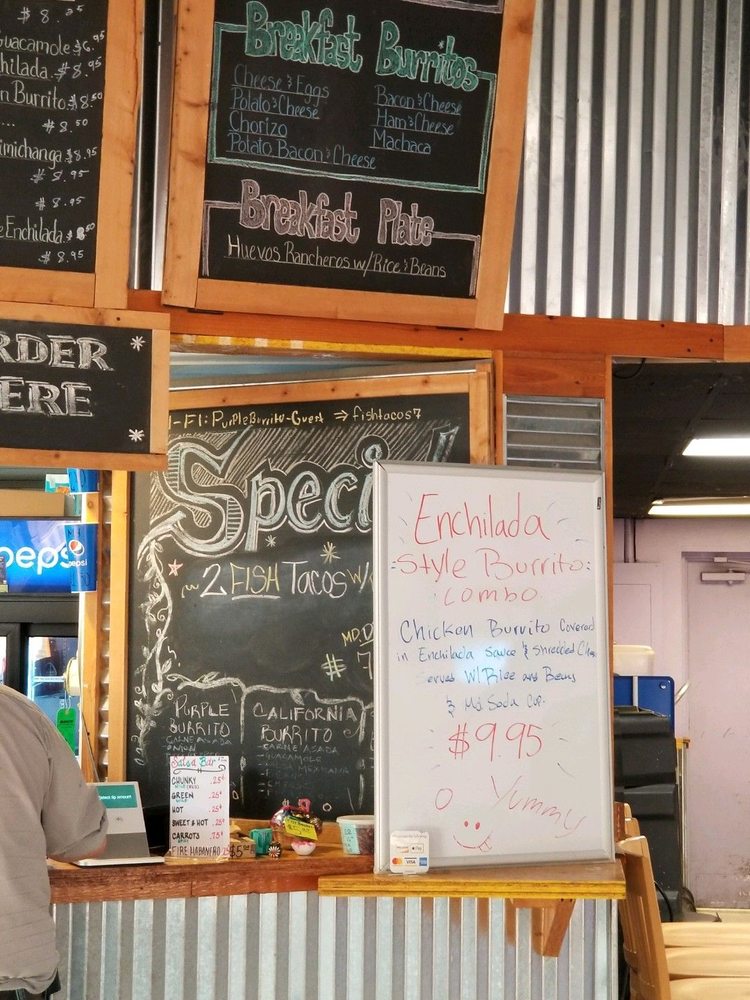 $8.25
Guacamole $6.95
chilada. $8.95
n Burrito $8.50
$8.50
imichanga $8.95
$8.95
$8.95
Enchilada
$8.95
Breakfast Burritos
Cheese & Eggs
Potato & Cheese
Chorizo
Potato Bacon & Cheese
Bacon & Cheese
Ham & Cheese
Machaca
Breakfast Plate
Huevos Rancheros w/Rice & Beans
RDER
ERE
-FI: PurpleBurrito-Guest → fishtacos7
Speci
2 FISH Tacos w/
MD. D
$7
PURPLE
BURRITO
CARNE ASADA
CALIFORNIA
BURRITO
CARNE ASADA
GUACAMOLE
pepsi
pepsi
Salsa Bar
CHUNKY .25¢
GREEN .25¢
HOT .25¢
SWEET & HOT .25¢
CARROTS .25¢
FIRE HABANERO
Enchilada
Style Burrito
Combo
Chicken Burrito Covered
in Enchilada Sauce & Shredded Chee
serves W/ Rice and Beans
& Md. Soda Cup.
$9.95
Yummy
VISA